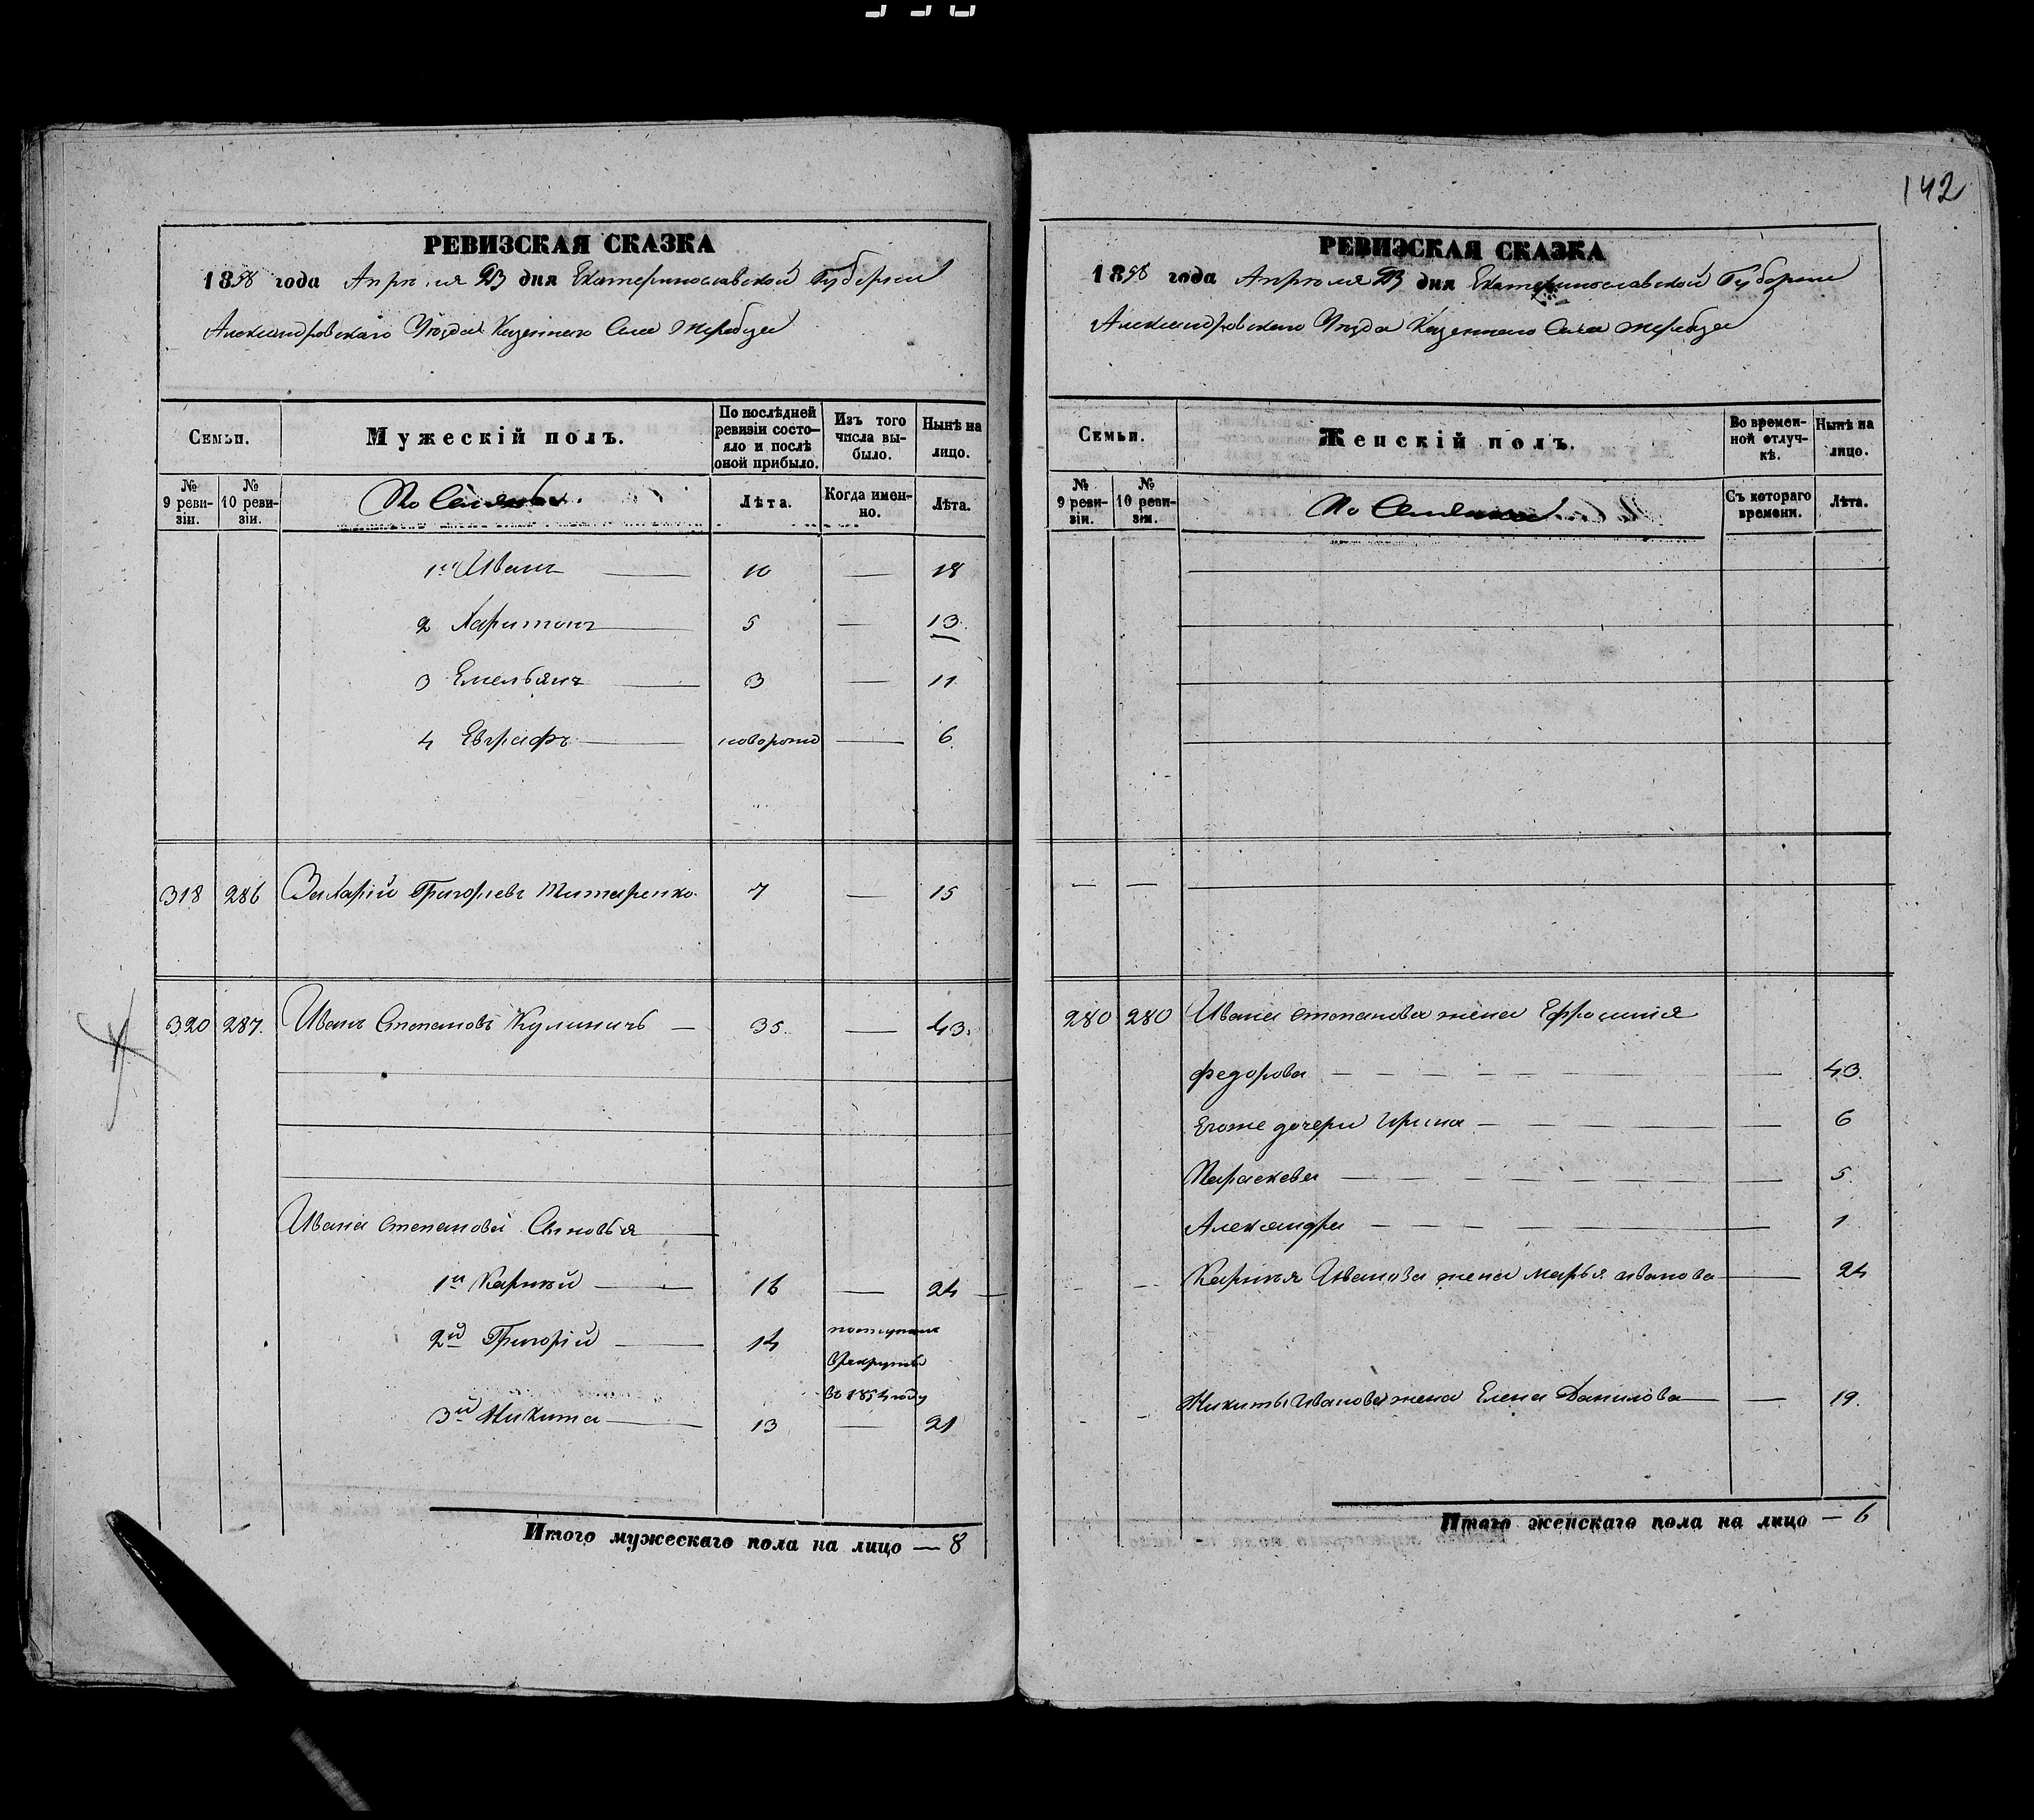 142
РЕВИЗСКАЯ СКАЗКА
1858 года Апрѣля 23 дня Екатеринославской Губернии
Александровскаго Уѣзда Казеннаго Села Жеребца
Семьи.
Мужескій полъ.
По послѣдней ревизіи состояло и послѣ оной прибыло.
Изъ того числа выбыло.
Нынѣ на лицо.
№ 9 ревизіи.
№ 10 ревизіи.
Лѣта.
Когда именно.
Лѣта.
1й Иванъ — 10 — 18
2 Харитонъ — 5 — 13
3 Емельянъ — 3 — 11
4 Евграфъ — новорожд — 6
318 286 Захарій Григорьевъ Титаренко 7 — 15
320 287 Иванъ Степановъ Кулиничъ — 35 — 43
Ивана Степанова Сыновья
1й Карпій — 16 — 24
2й Григорій — 14 поступилъ
в рекруты
въ 1854 году
3й Никита — 13 — 21
Итого мужескаго пола на лицо — 8
РЕВИЗСКАЯ СКАЗКА
1858 года Апрѣля 23 дня Екатеринославской Губернии
Александровскаго Уѣзда Казеннаго Села Жеребца
Семьи.
Женскій полъ.
Во временной отлучкѣ.
Нынѣ на лицо.
№ 9 ревизіи.
№ 10 ревизіи.
Съ котораго времени.
Лѣта.
280 280 Ивана Степанова жена Ефросинія
Федорова — 43
Егоже дочери Ирина — 6
Параскева — 5
Александра — 1
Иванова жена Марья Иванова — 24
Никиты Иванова жена Елена Данилова — 19
Итого женскаго пола на лицо — 6